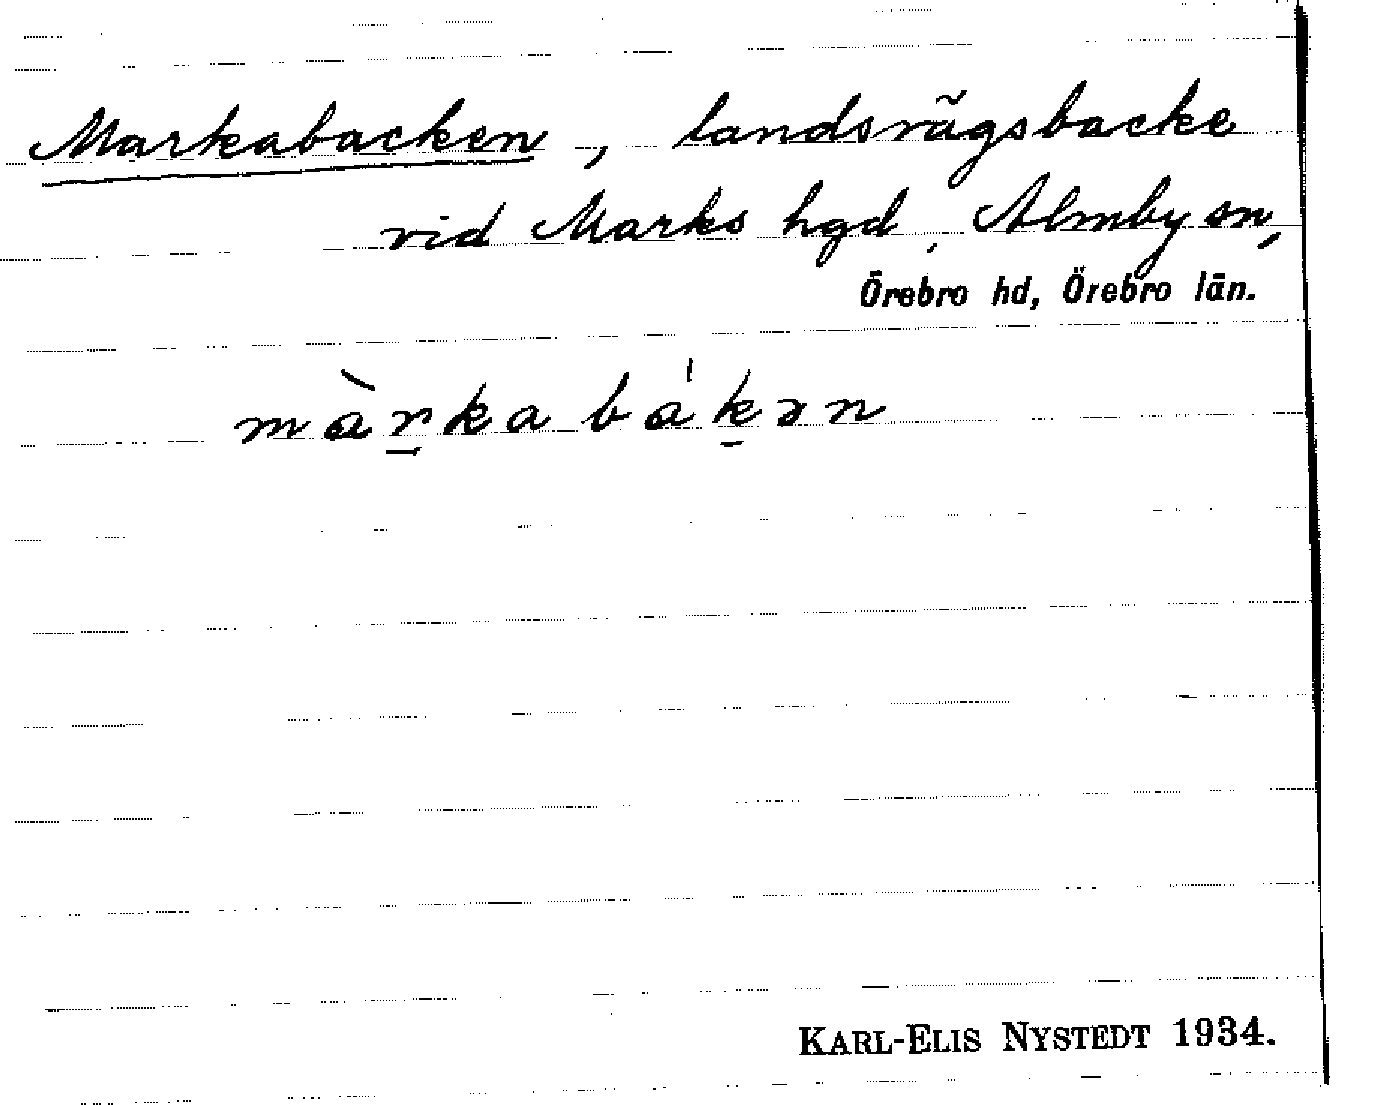 Markabacken, landsvägsbacke
vid Marks hgd, Almby sn,
Örebro hd, Örebro län.
màr̠kabák̠ən
KARL-ELIS NYSTEDT 1934.